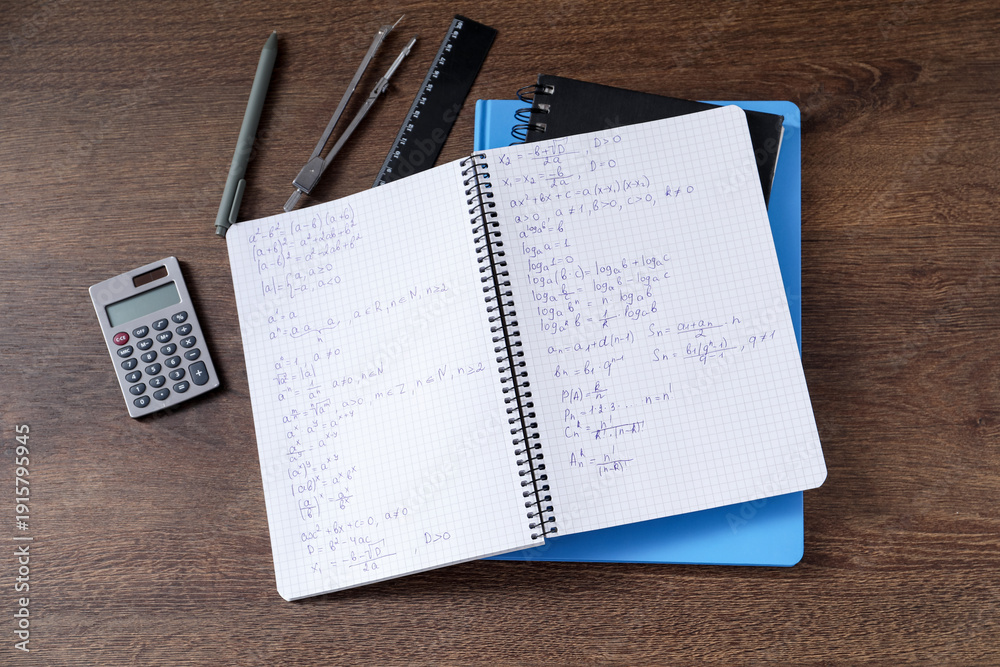 a²-b² = (a-b)(a+b)
(a+b)² = a²+2ab+b²
(a-b)² = a²-2ab+b²
|a| = { a, a≥0
-a, a<0
a¹ = a
aⁿ = a·a...a, a∈R, n∈N, n≥2
n
a⁰ = 1, a≠0
√a² = |a|
a⁻ⁿ = 1/aⁿ, a≠0, n∈N
= ⁿ√aᵐ, a>0, m∈Z, n∈N, n≥2
aˣ·aʸ = aˣ⁺ʸ
aˣ/aʸ = aˣ⁻ʸ
(aˣ)ʸ = aˣʸ
(ab)ˣ = aˣbˣ
(a/b)ˣ = aˣ/bˣ
ax²+bx+c=0, a≠0
D = b²-4ac
x₁ = (-b-√D)/2a, D>0
x₂ = (-b+√D)/2a, D>0
x₁=x₂ = -b/2a, D=0
ax²+bx+c = a(x-x₁)(x-x₂)
a>0, a≠1, b>0, c>0, k≠0
a^(logₐb) = b
logₐa = 1
logₐ1 = 0
logₐ(b·c) = logₐb + logₐc
logₐ b/c = logₐb - logₐc
logₐbⁿ = n logₐb
= 1/k · logₐb
aₙ = a₁+d(n-1) Sₙ = (a₁+aₙ)/2 · n
bₙ = b₁·qⁿ⁻¹ Sₙ = b₁(qⁿ-1)/(q-1), q≠1
P(A) = k/n
Pₙ = 1·2·3·...·n = n!
Cₙᵏ = n!/(k!·(n-k)!)
Aₙᵏ = n!/(n-k)!
Adobe Stock | 1915795945